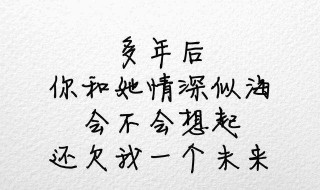 多年后
你和她情深似海
会不会想起
还欠我一个未来